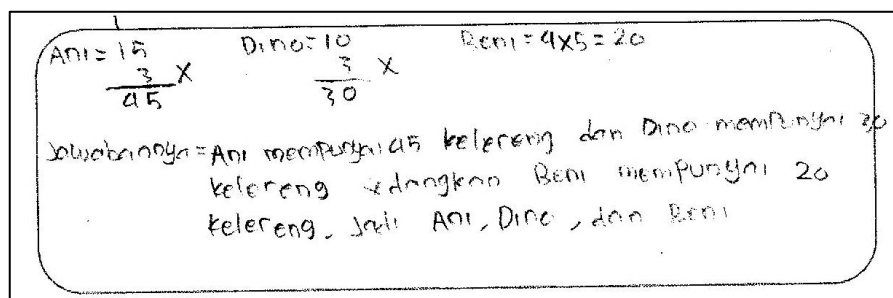 Ani = 15 Dino = 10 Beni = 4x5 = 20
1
3 x 3 x
45 30
Jawabannya = Ani mempunyai 45 kelereng dan Dino mempunyai 30
kelereng sedangkan Beni mempunyai 20
kelereng, Jadi Ani, Dino, dan Beni